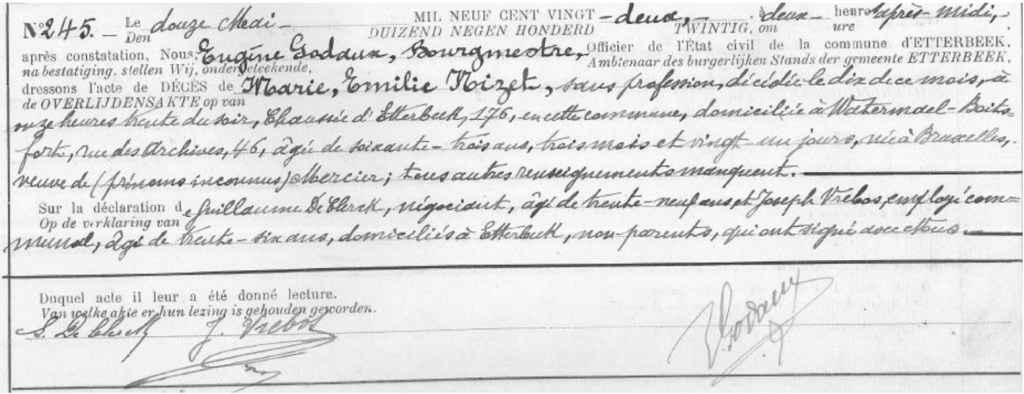 N° 245. — Le Den douze Mai — MIL NEUF CENT VINGT DUIZEND NEGEN HONDERD — deux, — TWINTIG, om à deux heure ure après-midi,
après constatation, Nous, Eugène Godaux, Bourgmestre, Officier de l'État civil de la commune d'ETTERBEEK,
na bestatiging, stellen Wij, ondergeteekende, Ambtenaar des burgerlijken Stands der gemeente ETTERBEEK,
dressons l'acte de DÉCÈS de Marie, Emilie Nizet, sans profession, décédée le dix de ce mois, à
de OVERLIJDENSAKTE op van
onze heures trente du soir, Chaussée d'Etterbeek, 176, en cette commune, domiciliée à Watermael-Boits-
fort, rue des Archives, 46, âgée de soixante-trois ans, trois mois et vingt-un jours, née à Bruxelles,
veuve de (prénoms inconnus) Mercier; tous autres renseignements manquent. —
Sur la déclaration de Guillaume De Clerck, négociant, âgé de trente-neuf ans et Joseph Vrebos, employé com-
Op de verklaring van
munal, âgé de trente-six ans, domiciliés à Etterbeek, non-parents, qui ont signé avec Nous. —
Duquel acte il leur a été donné lecture.
Van welke akte er hun lezing is gehouden geworden.
De Clerck J. Vrebos
Godaux